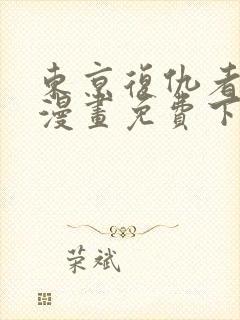 東京復仇者
漫畫免費下
荣斌